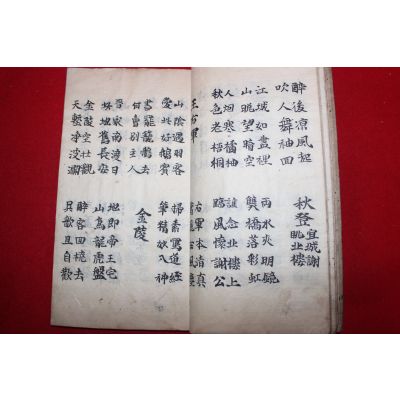 醉後凉風起
吹人舞袖回
秋登宣城謝
眺北樓
江城如畫裡
山眺望晴空
兩水夾明鏡
雙橋落彩虹
人烟寒橘柚
秋色老梧桐
誰念北樓上
臨風懷謝公
王右軍
右軍本清真
在風塵
山陰遇羽客
愛此好鵝賓
掃素寫道經
筆精妙入神
書罷籠鵝去
何曾別主人
金陵
晉家南渡日
此地舊長安
地即帝王宅
山爲龍虎盤
金陵空壯觀
天塹淨波瀾
醉客回橈去
吳歌且自歡